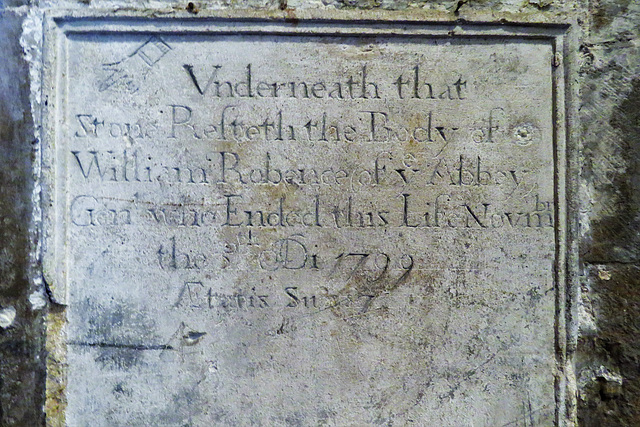 Vnderneath that
Stone Resteth the Body of
William Robence of yᵉ Abbey
Genᵗ who Ended this Life Novᵇʳ
the Dĩ 1799
Ætatis Suæ 7